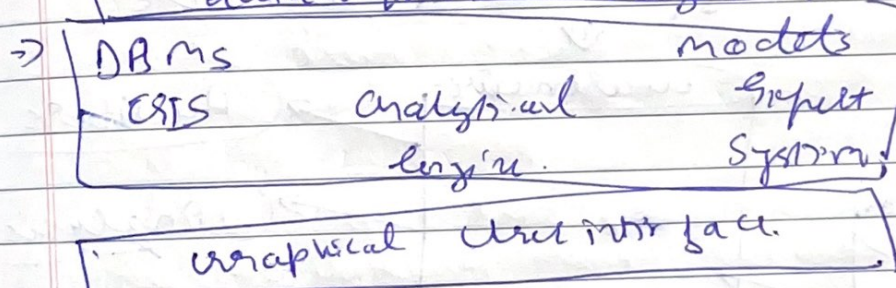 DBMS models
GIS analytical Expert
Engine. System
Graphical User interface.